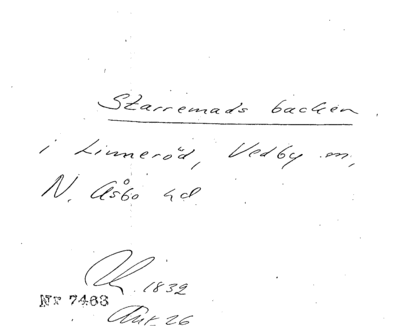 Starremads backen
i Linneröd, Vedby sn,
N. Åsbo hd
Kh. 1832
Nr 7463
Ank. 26